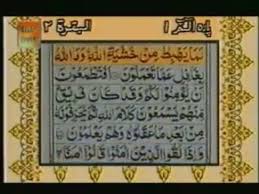 پارہ الٓمّٓ ١
البقرة ٢
لَمَا يَهْبِطُ مِنْ خَشْيَةِ اللّٰهِ وَمَا اللّٰهُ
بِغَافِلٍ عَمَّا تَعْمَلُوْنَ اَفَتَطْمَعُوْنَ
اَنْ يُّؤْمِنُوْا لَكُمْ وَقَدْ كَانَ فَرِيْقٌ
مِّنْهُمْ يَسْمَعُوْنَ كَلَامَ اللّٰهِ ثُمَّ يُحَرِّفُوْنَهٗ
مِنْۢ بَعْدِ مَا عَقَلُوْهُ وَهُمْ يَعْلَمُوْنَ
وَاِذَا لَقُوا الَّذِيْنَ اٰمَنُوْا قَالُوْٓا اٰمَنَّا